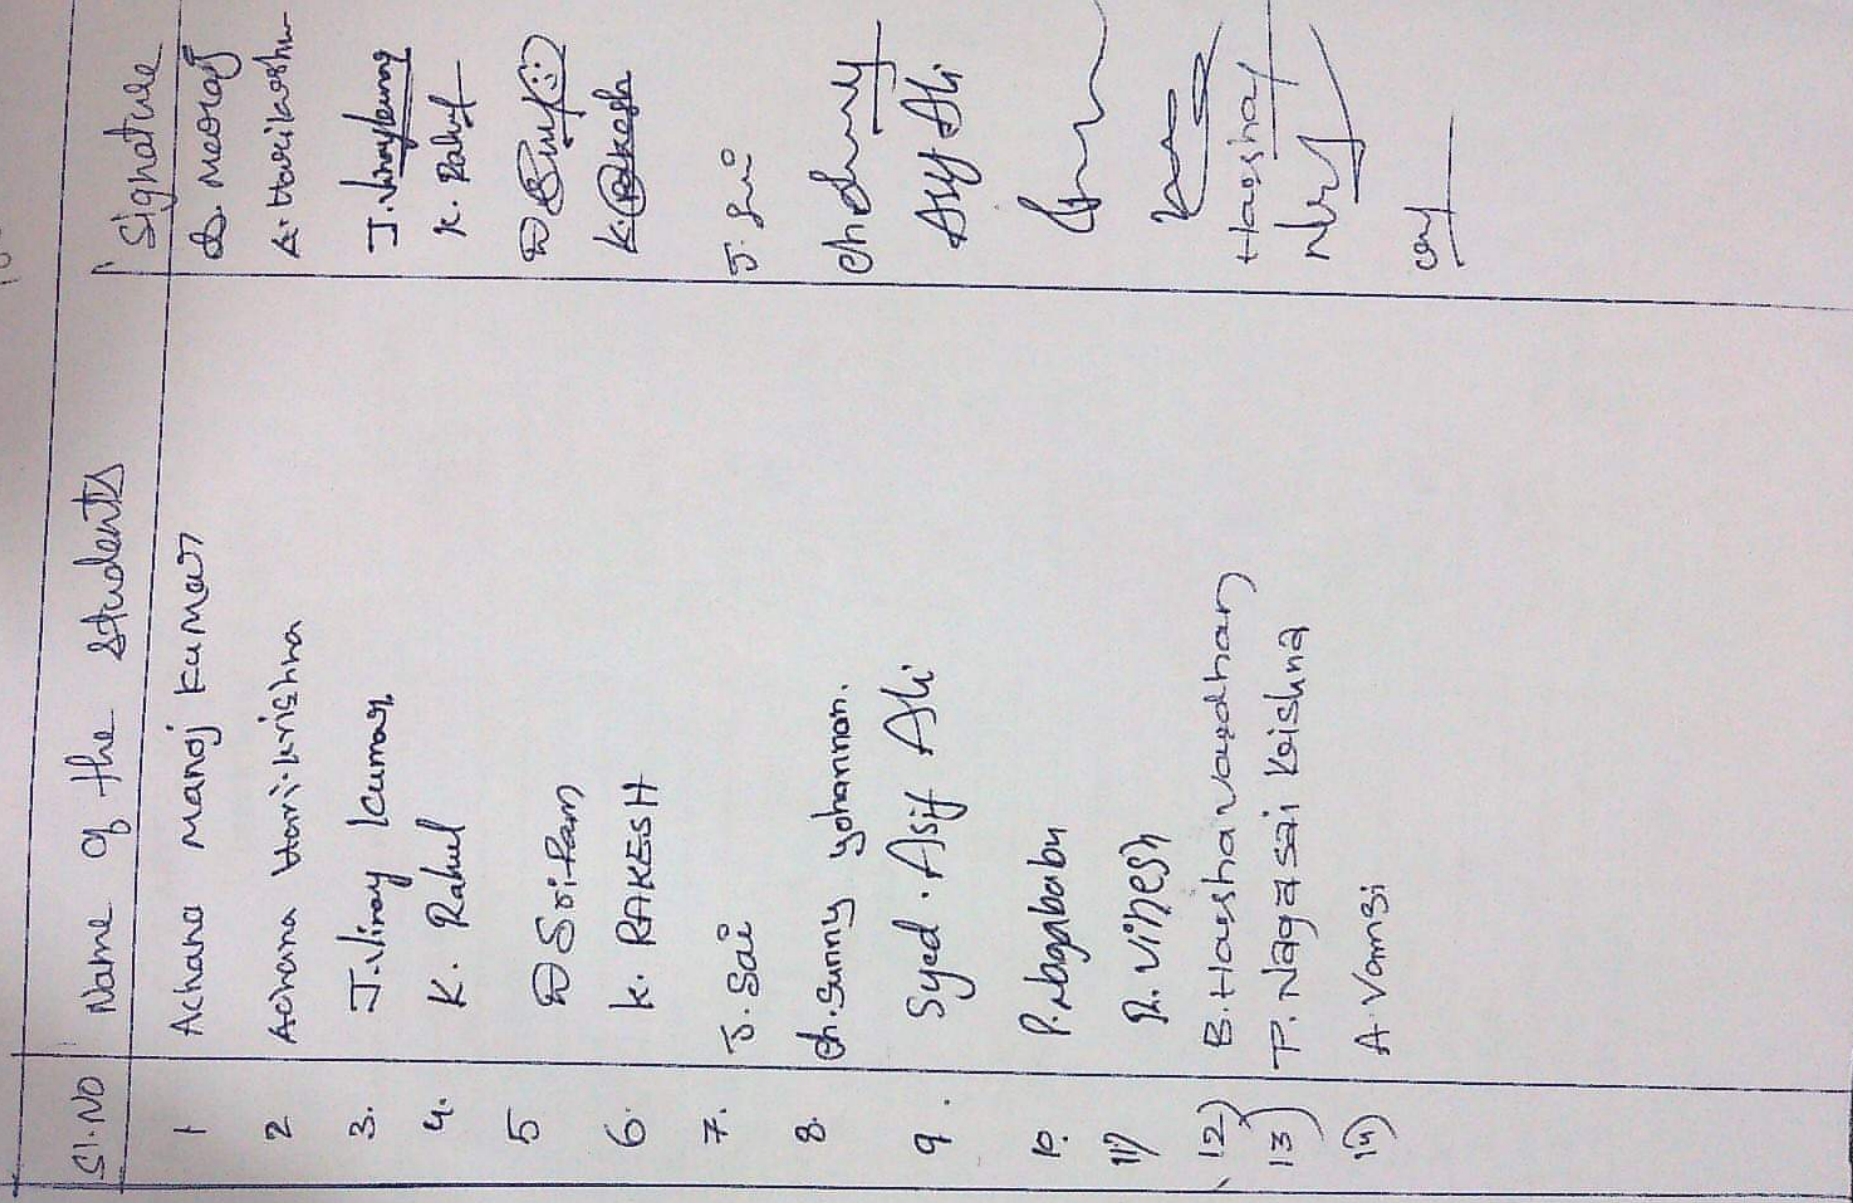 Sl.No Name of the Students Signature
1 Achana Manoj Kumar A. Manoj
2 Achana Hari.krishna A. Harikrishna
3. J.Vinay Kumar. J.Vinaykumar
4. K. Rahul K. Rahul
5 D Sri Ram
6. K. RAKESH K Rakesh
7. J. Sai J. Sai
8. Ch. Sunny yohannan. Ch Sunny
9. Syed . Asif Ali Asif Ali
10. P. Nagababu
11) R. Vinesh
12) B. Harshavardhan Harsha
13) T. Naga Sai Krishna
14) A. Vamsi